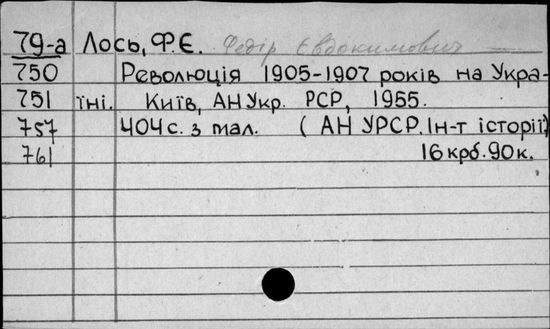 79-а Лось, Ф.Є. Федір Євдокимович
750 Революція 1905-1907 років на Укра-
751 їні. Київ, АН Укр. РСР, 1955.
757 404 с. з мал. (АН УРСР. Ін-т історії)
761 16 крб. 90 к.